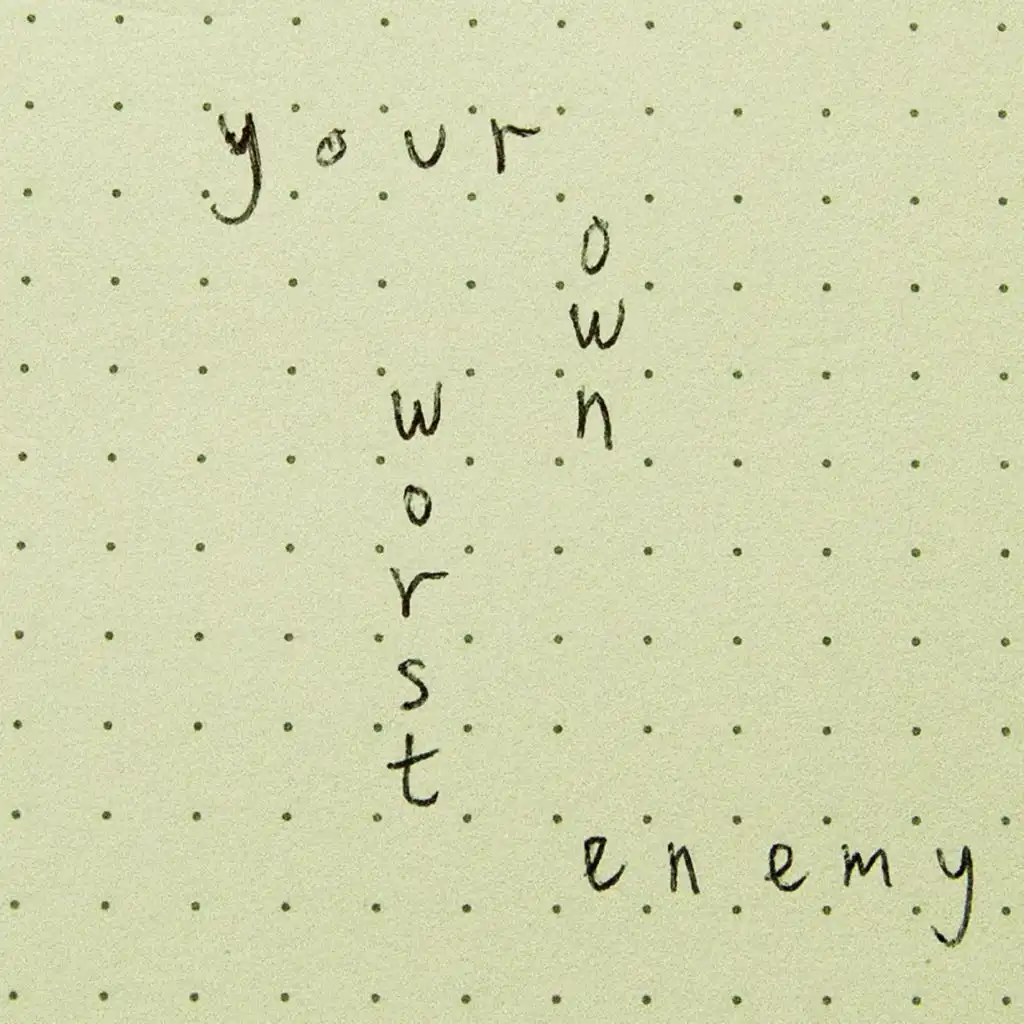 your
own
worst
enemy